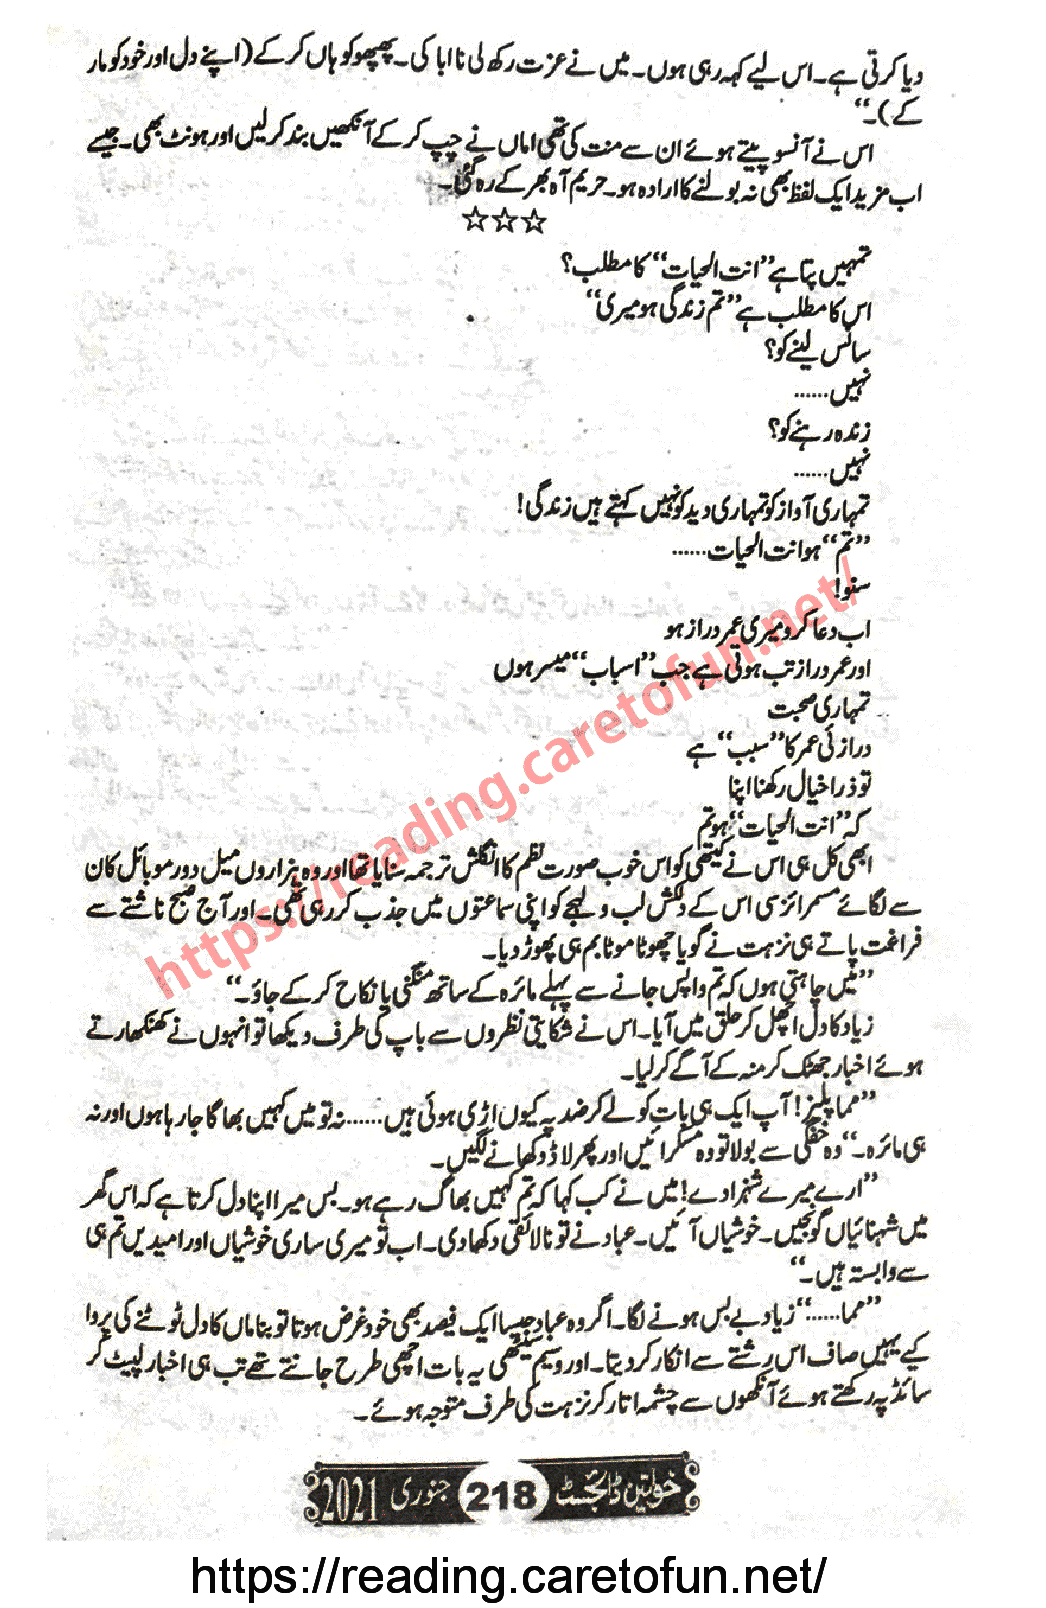 دیا کرتی ہے۔ اس لیے کہہ رہی ہوں۔ میں نے عزت رکھ لی نا ابا کی۔ پھپھو کو ہاں کر کے (اپنے دل اور خود کو مار
کے)۔“
اس نے آنسو پیتے ہوئے ان سے منت کی تھی اماں نے چپ کر کے آنکھیں بند کر لیں اور ہونٹ بھی۔ جیسے
اب مزید ایک لفظ بھی نہ بولنے کا ارادہ ہو۔ حریم آہ بھر کے رہ گئی۔
☆☆☆
تمہیں پتا ہے ”انت الحیات“ کا مطلب؟
اس کا مطلب ہے ”تم زندگی ہو میری“
سانس لینے کو؟
نہیں......
زندہ رہنے کو؟
نہیں......
تمہاری آواز کو تمہاری دید کو نہیں کہتے ہیں زندگی!
”تم“ ہو انت الحیات......
سنو!
اب دعا کرو میری عمر دراز ہو
اور عمر دراز تب ہوتی ہے جب ”اسباب“ میسر ہوں
تمہاری صحبت
درازئی عمر کا ”سبب“ ہے
تو ذرا خیال رکھنا اپنا
کہ ”انت الحیات“ ہو تم
ابھی کل ہی اس نے کیتھی کو اس خوب صورت نظم کا انگلش ترجمہ سنایا تھا اور وہ ہزاروں میل دور موبائل کان
سے لگائے مسمرائزسی اس کے دلکش لب و لہجے کو اپنی سماعتوں میں جذب کر رہی تھی۔ اور آج صبح ناشتے سے
فراغت پاتے ہی نزہت نے گویا چھوٹا موٹا بم ہی پھوڑ دیا۔
”میں چاہتی ہوں کہ تم واپس جانے سے پہلے مائرہ کے ساتھ منگنی یا نکاح کر کے جاؤ۔“
زیاد کا دل اچھل کر حلق میں آیا۔ اس نے شکایتی نظروں سے باپ کی طرف دیکھا تو انہوں نے کھنکھارتے
ہوئے اخبار جھٹک کر منہ کے آگے کر لیا۔
”مما پلیز! آپ ایک ہی بات کو لے کر ضد پہ کیوں اڑی ہوئی ہیں......نہ تو میں کہیں بھاگا جا رہا ہوں اور نہ
ہی مائرہ۔“ وہ خفگی سے بولا تو وہ مسکرائیں اور پھر لاڈ دکھانے لگیں۔
”ارے میرے شہزادے! میں نے کب کہا کہ تم کہیں بھاگ رہے ہو۔ بس میرا اپنا دل کرتا ہے کہ اس گھر
میں شہنائیاں گونجیں۔ خوشیاں آئیں۔ عباد نے تو نالائقی دکھا دی۔ اب تو میری ساری خوشیاں اور امیدیں تم ہی
سے وابستہ ہیں۔“
”مما......“ زیاد بے بس ہونے لگا۔ اگر وہ عباد جیسا ایک فیصد بھی خود غرض ہوتا تو بنا ماں کا دل ٹوٹنے کی پروا
کیے یہیں صاف اس رشتے سے انکار کر دیتا۔ اور وسیم سیٹھی یہ بات اچھی طرح جانتے تھے تب ہی اخبار لپیٹ کر
سائڈ پہ رکھتے ہوئے آنکھوں سے چشمہ اتار کر نزہت کی طرف متوجہ ہوئے۔
خواتین ڈائجسٹ 218 جنوری 2021
https://reading.caretofun.net/
https://reading.caretofun.net/